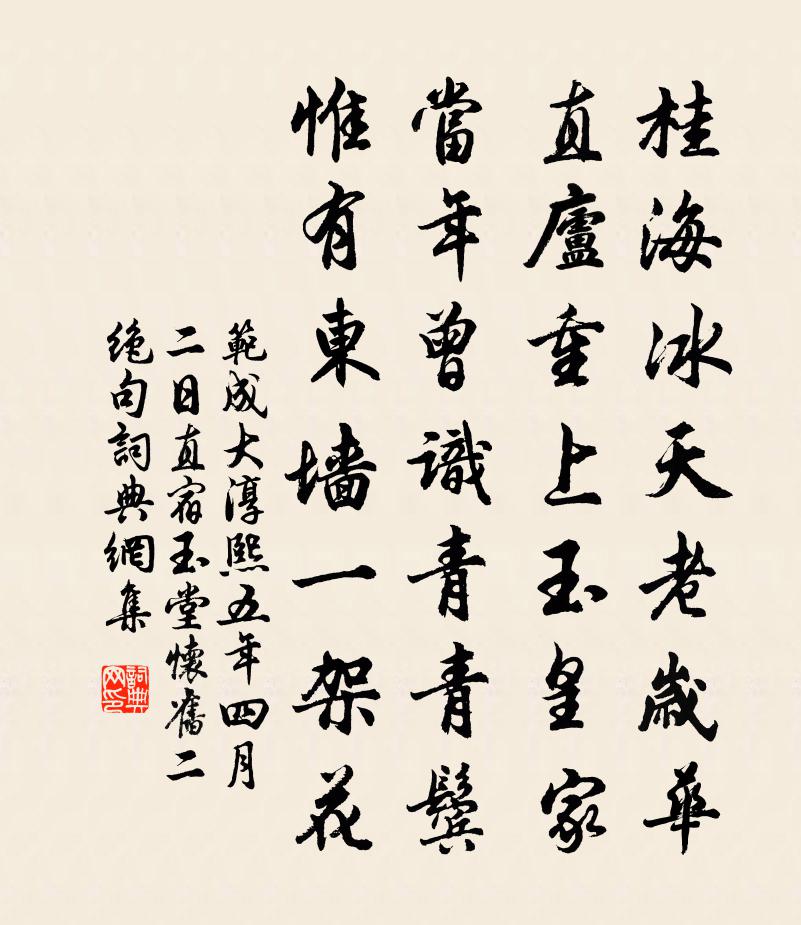 桂海冰天老歲華
直廬重上玉皇家
當年曾識青青鬢
惟有東墻一架花
範成大淳熙五年四月
二日直宿玉堂懷舊二
絶句詞典網集
詞典
网印